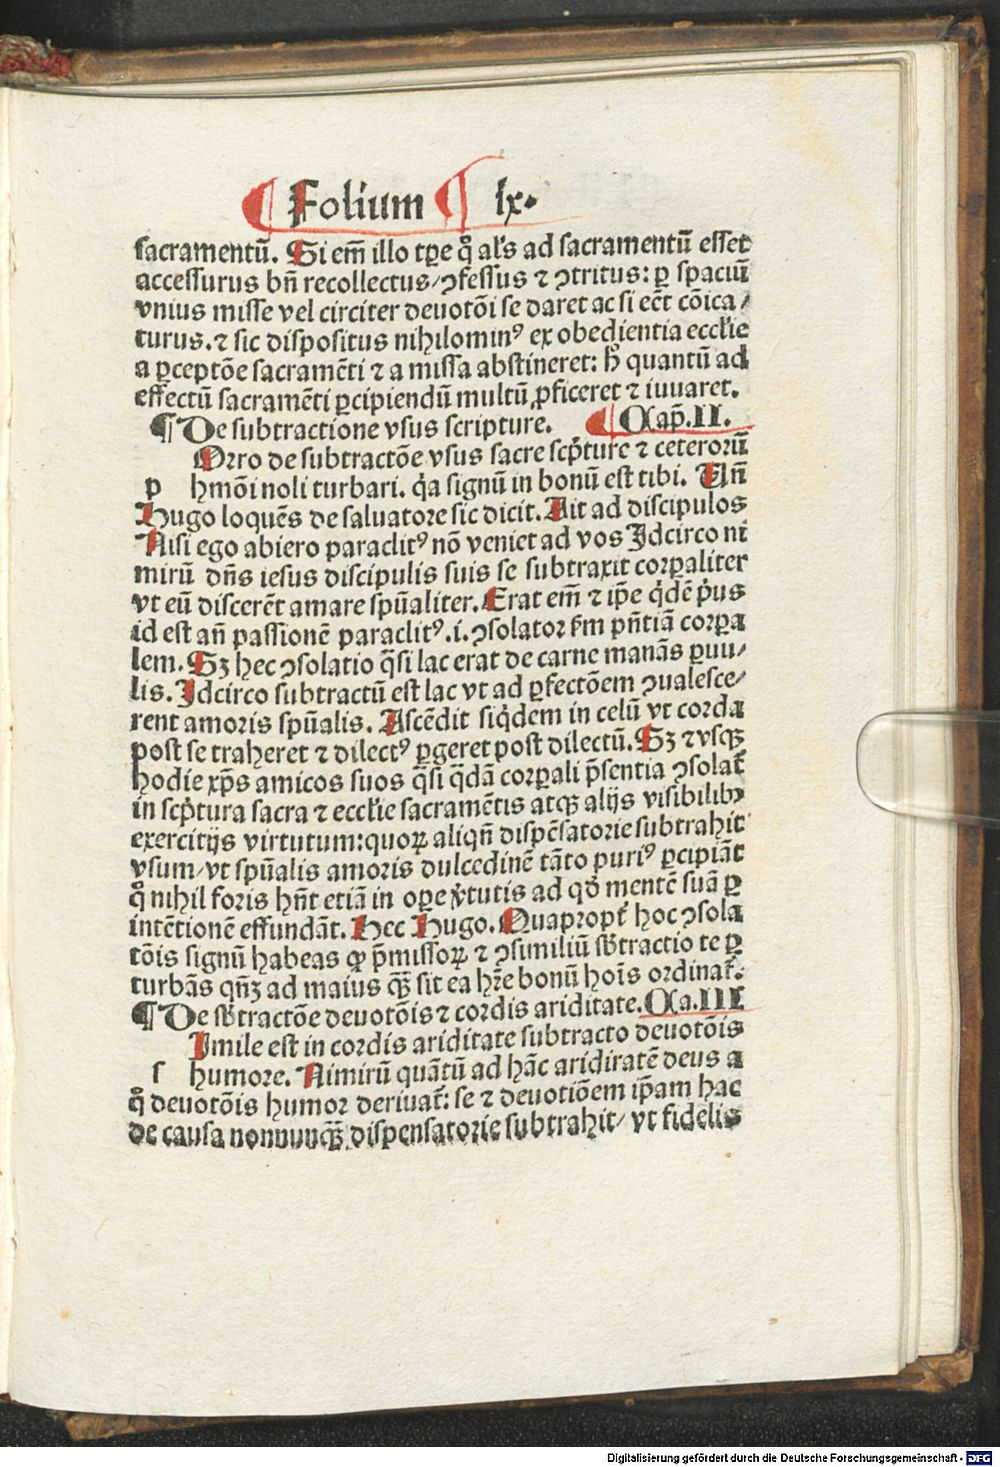 Folium lx.
sacramentū. Si em̄ illo tp̄e qͦ als̄ ad sacramentū esset
accessurus bn̄ recollectus/ ꝯfessus ⁊ ꝯtritus: ꝑ spaciū
vnius misse vel circiter deuotōi se daret ac si ec̄t cōica/
turus. ⁊ sic dispositus nihilominꝰ ex obedientia eccl̄ie
a ꝑceptōe sacramēti ⁊ a missa abstineret: hͦ quantū ad
effectū sacramēti ꝑcipiendū multū ꝓficeret ⁊ iuuaret.
¶ De subtractione vsus scripture. ¶ Cap̄. II.
Orro de subtractōe vsus sacre scp̄ture ⁊ ceterorū
p hmōi noli turbari. qͥa signū in bonū est tibi. Un̄
Hugo loquēs de saluatore sic dicit. Ait ad discipulos
Nisi ego abiero paraclitꝰ nō veniet ad vos Idcirco ni
mirū dn̄s iesus discipulis suis se subtraxit corꝑaliter
vt eū discerēt amare spūaliter. Erat em̄ ⁊ ip̄e qͥdē pͥus
id est an̄ passionē paraclitꝰ .i. ꝯsolator ẜm pn̄tiā corꝑa
lem. Sꝫ hec ꝯsolatio q̄si lac erat de carne manās ꝑuu/
lis. Idcirco subtractū est lac vt ad ꝑfectōem ꝯualesce/
rent amoris spūalis. Ascēdit siqͥdem in celū vt corda
post se traheret ⁊ dilectꝰ ꝑgeret post dilectū. Sꝫ ⁊ vsqꝫ
hodie xp̄s amicos suos q̄si q̄dā corꝑali p̄sentia ꝯsolat᷑
in scpͥtura sacra ⁊ eccl̄ie sacramētis atqꝫ alijs visibilibꝰ
exercitijs virtutum: quoꝝ aliqn̄ dispēsatorie subtrahit
vsum/ vt spūalis amoris dulcedinē tāto puriꝰ ꝑcipiāt
qͦ nihil foris hn̄t etiā in oꝑe v̓tutis ad qđ mentē suā ꝑ
intētionē effundāt. Hec Hugo. Quapropt᷑ hoc ꝯsola
tōis signū habeas ꝙ p̄missoꝝ ⁊ ꝯsimiliū sb̄tractio te ꝑ
turbās qn̄ꝫ ad maius qꝫ̄ sit ea hr̄e bonū hoīs ordinat᷑.
¶ De sb̄tractōe deuotōis ⁊ cordis ariditate. Ca. III
Imile est in cordis ariditate subtracto deuotōis
s humore. Nimirū quātū ad hāc ariditatē deus a
qͦ deuotōis humor deriuat᷑: se ⁊ deuotiōem ip̄am hac
de causa nonnunqꝫ̄ dispensatorie subtrahit/ vt fidelis
Digitalisierung gefördert durch die Deutsche Forschungsgemeinschaft - DFG